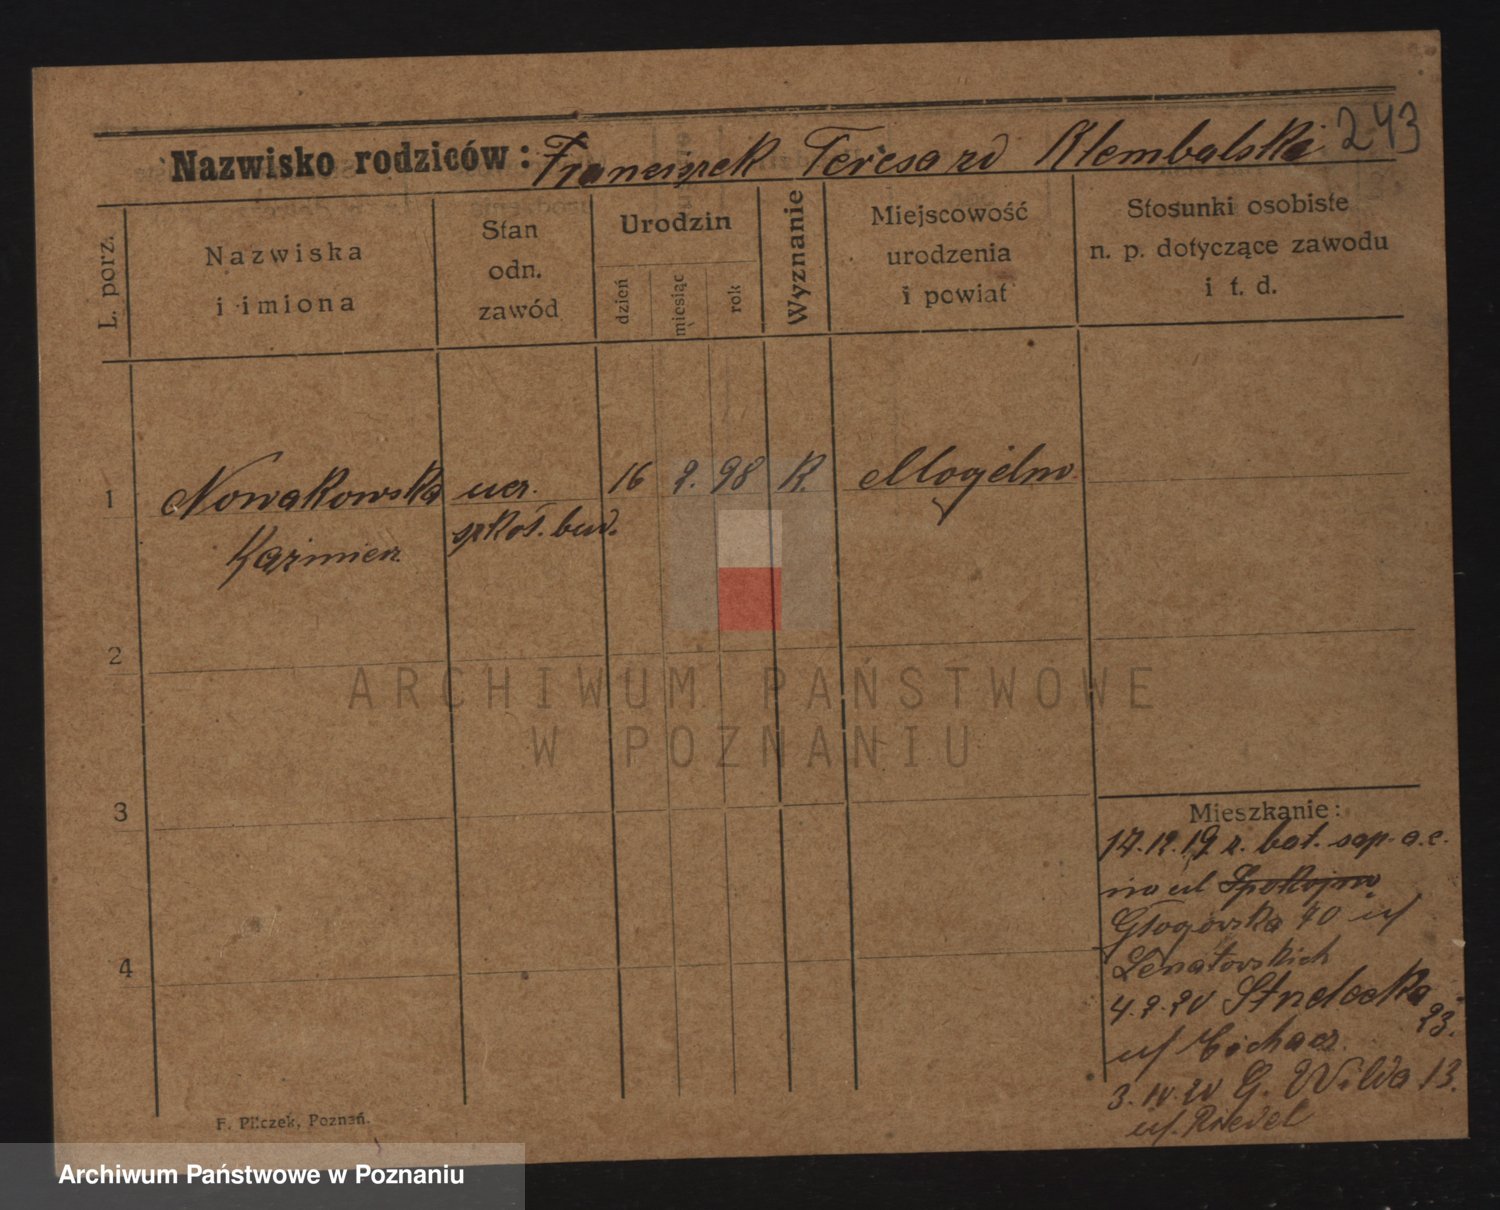 243
Nazwisko rodziców: Franciszek Teresa zd Klembalska
L. porz.
Nazwiska
i imiona
Stan
odn.
zawód
Urodzin
dzień
miesiąc
rok
Wyznanie
Miejscowość
urodzenia
i powiat
Stosunki osobiste
n. p. dotyczące zawodu
i t. d.
1 Nowakowska ucz. 16 2. 98 K. Mogilno
Kazimierz szkoł. bud.
2
3
4
Mieszkanie:
17.12.19 z. bat. sap.
na ul Spokojna
Głogowska 70 u/
Lenartowskich
4.2.20 Strzelecka
23.
u/ Cichacz
3.IV.20 G. Wilda 13.
u/. Riedel
F. Pilczek, Poznań.
ARCHIWUM PAŃSTWOWE
W POZNANIU
Archiwum Państwowe w Poznaniu